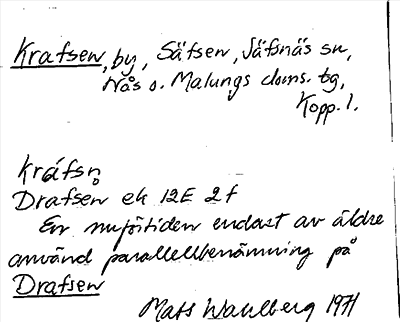 Krafsen, by, Säfsen, Säfsnäs sn,
Nås o. Malungs doms. tg,
Kopp. l.
Kráfsn̥
Drafsen ek 12E 2f
En nuförtiden endast av äldre
använd parallellbenämning på
Drafsen
Mats Wahlberg 1971